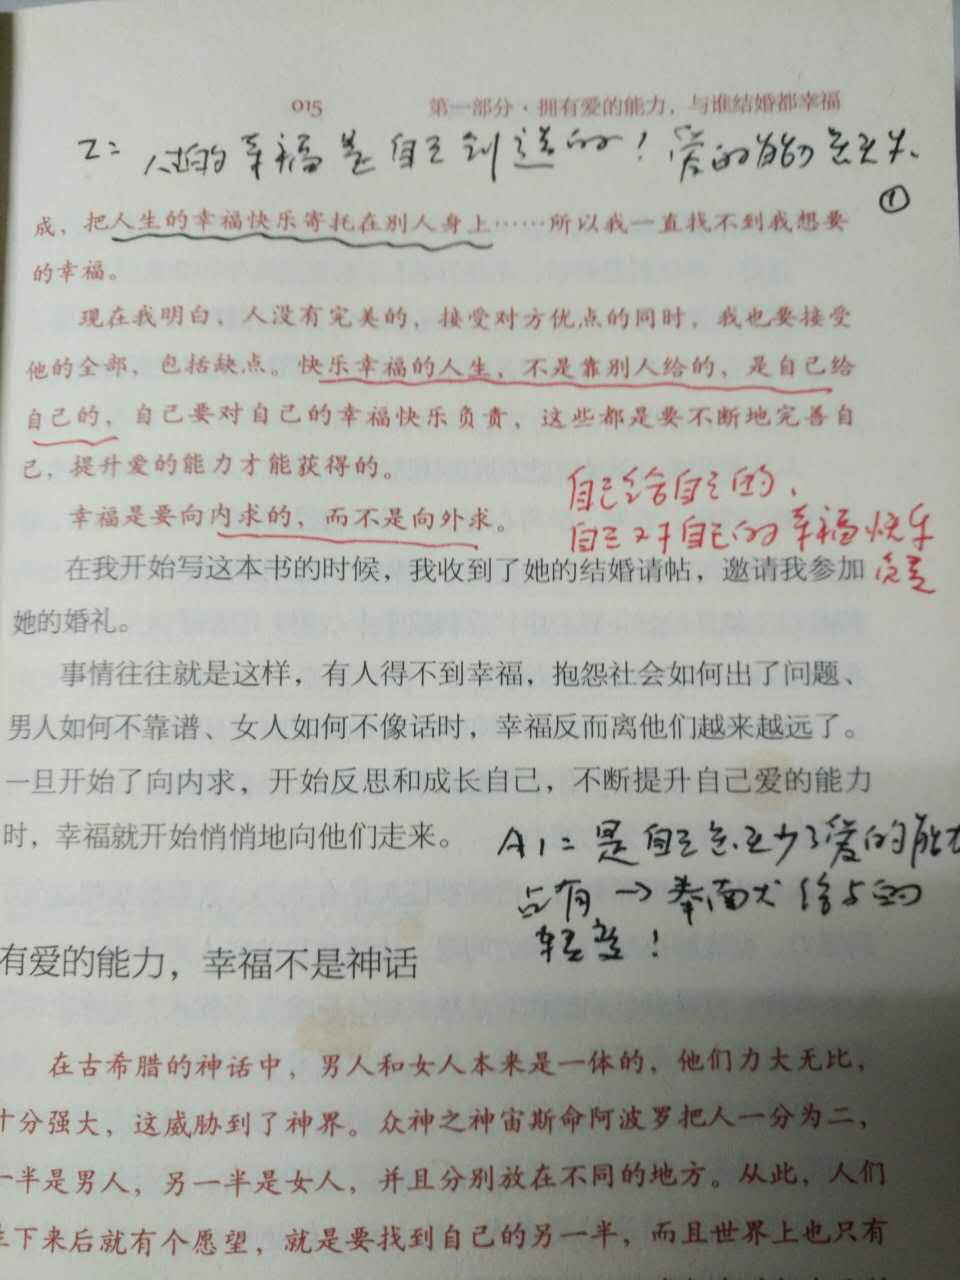 015 第一部分·拥有爱的能力，与谁结婚都幸福
I= 人生的幸福是自己创造的！爱的能力
①
成，把人生的幸福快乐寄托在别人身上……所以我一直找不到我想要
的幸福。
现在我明白，人没有完美的，接受对方优点的同时，我也要接受
他的全部，包括缺点。快乐幸福的人生，不是靠别人给的，是自己给
自己的，自己要对自己的幸福快乐负责，这些都是要不断地完善自
己，提升爱的能力才能获得的。
自己给自己的，
幸福是要向内求的，而不是向外求。
自己对自己的幸福快乐
负责
在我开始写这本书的时候，我收到了她的结婚请帖，邀请我参加
她的婚礼。
事情往往就是这样，有人得不到幸福，抱怨社会如何出了问题、
男人如何不靠谱、女人如何不像话时，幸福反而离他们越来越远了。
一旦开始了向内求，开始反思和成长自己，不断提升自己爱的能力
时，幸福就开始悄悄地向他们走来。
A1= 是自己 少了爱的能力
占有→
！
有爱的能力，幸福不是神话
在古希腊的神话中，男人和女人本来是一体的，他们力大无比，
十分强大，这威胁到了神界。众神之神宙斯命阿波罗把人一分为二，
一半是男人，另一半是女人，并且分别放在不同的地方。从此，人们
生下来后就有个愿望，就是要找到自己的另一半，而且世界上也只有